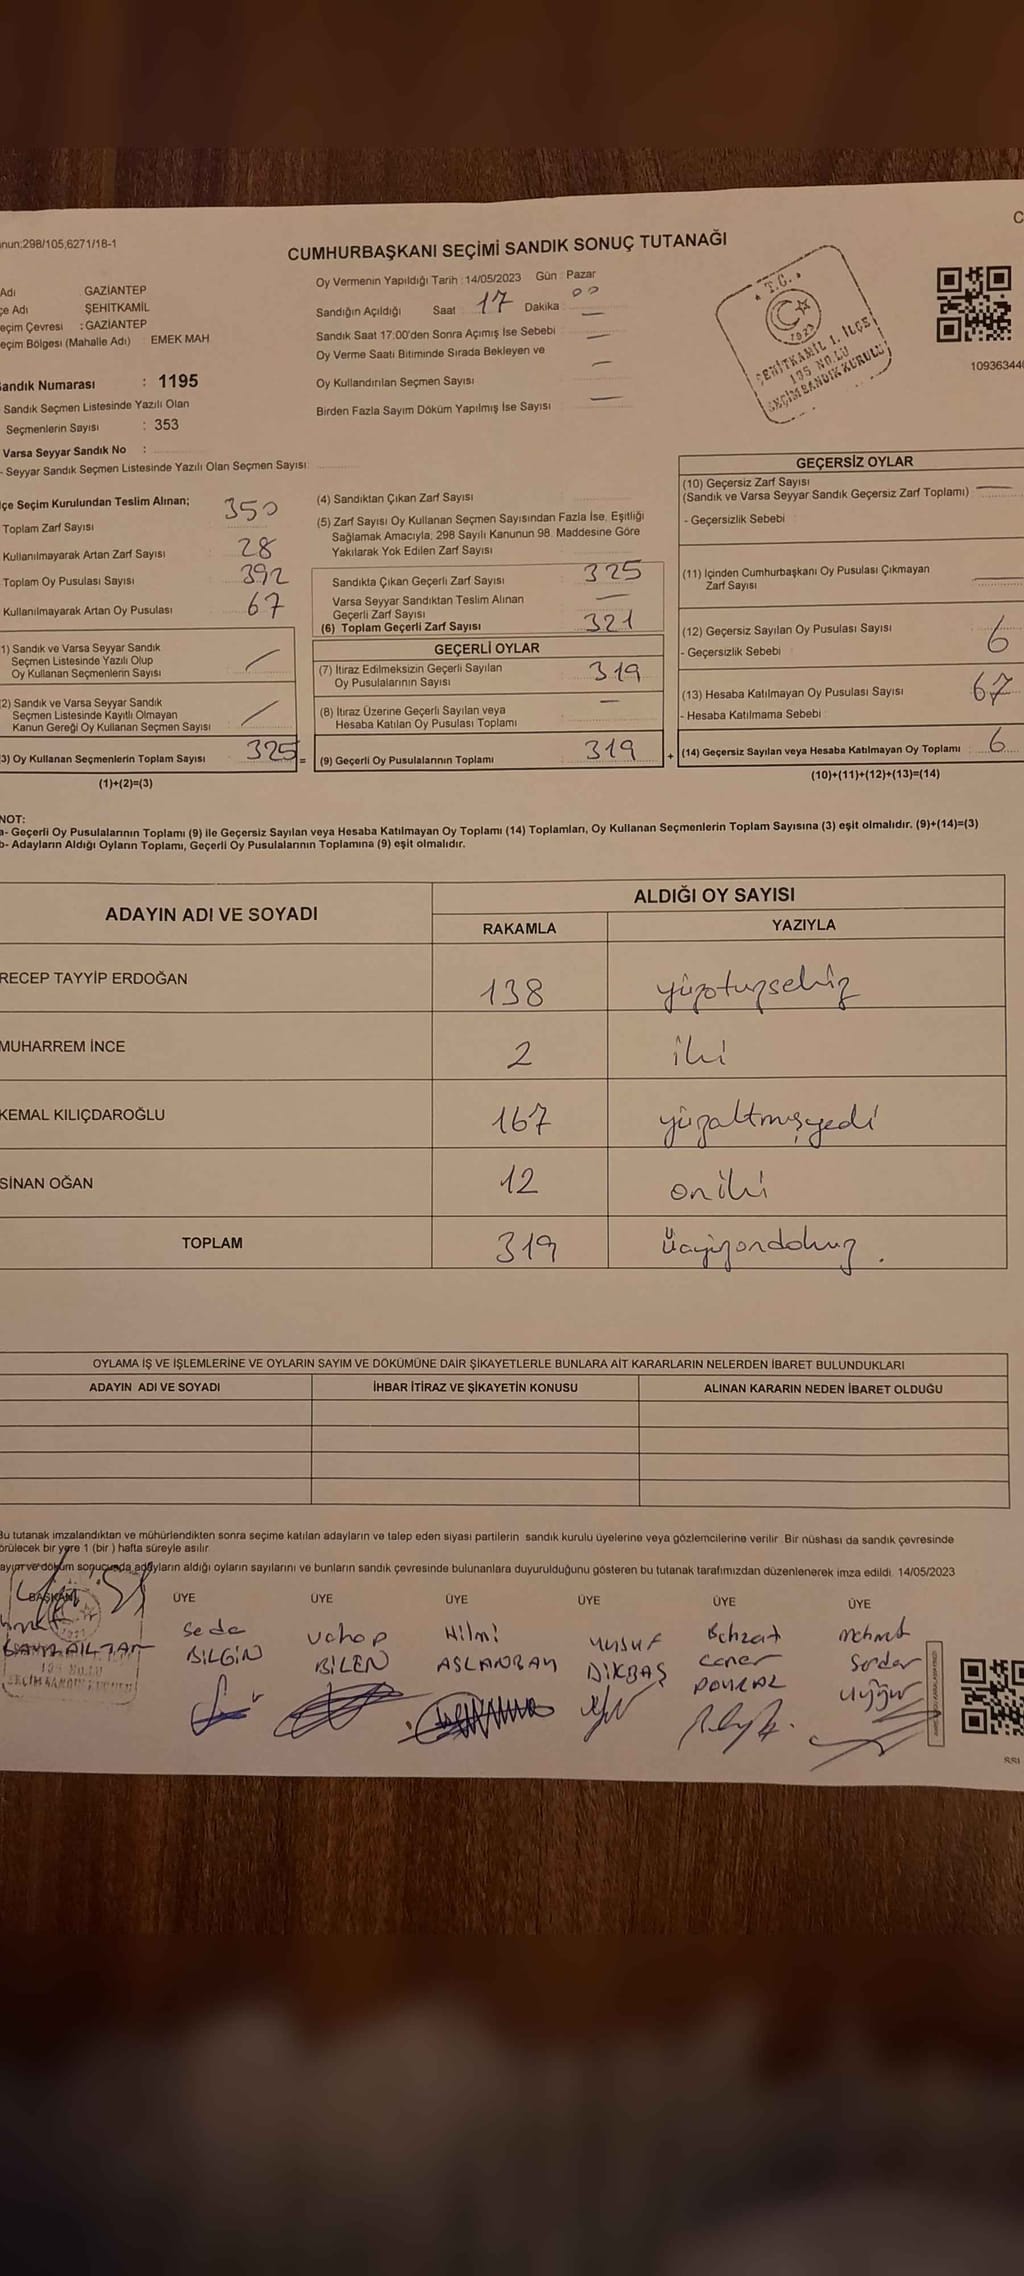 nun:298/105,6271/18-1
C
CUMHURBAŞKANI SEÇİMİ SANDIK SONUÇ TUTANAĞI
Adı GAZİANTEP
çe Adı ŞEHİTKAMİL
eçim Çevresi : GAZİANTEP
eçim Bölgesi (Mahalle Adı) : EMEK MAH
andık Numarası : 1195
Sandık Seçmen Listesinde Yazılı Olan
Seçmenlerin Sayısı : 353
Varsa Seyyar Sandık No :
- Seyyar Sandık Seçmen Listesinde Yazılı Olan Seçmen Sayısı:
Oy Vermenin Yapıldığı Tarih : 14/05/2023 Gün : Pazar
Sandığın Açıldığı Saat 17 Dakika : 00
Sandık Saat 17.00'den Sonra Açımış İse Sebebi —
Oy Verme Saati Bitiminde Sırada Bekleyen ve
Oy Kullandırılan Seçmen Sayısı —
Birden Fazla Sayım Döküm Yapılmış İse Sayısı —
T.C.
1923
ŞEHİTKAMİL 1. İLÇE
195 NO.LU
SEÇİM SANDIK KURULU
10936344
lçe Seçim Kurulundan Teslim Alınan;
Toplam Zarf Sayısı 350
Kullanılmayarak Artan Zarf Sayısı 28
Toplam Oy Pusulası Sayısı 392
Kullanılmayarak Artan Oy Pusulası 67
1) Sandık ve Varsa Seyyar Sandık
Seçmen Listesinde Yazılı Olup
Oy Kullanan Seçmenlerin Sayısı
2) Sandık ve Varsa Seyyar Sandık
Seçmen Listesinde Kayıtlı Olmayan
Kanun Gereği Oy Kullanan Seçmen Sayısı
3) Oy Kullanan Seçmenlerin Toplam Sayısı 325 =
(1)+(2)=(3)
(4) Sandıktan Çıkan Zarf Sayısı
(5) Zarf Sayısı Oy Kullanan Seçmen Sayısından Fazla İse, Eşitliği
Sağlamak Amacıyla, 298 Sayılı Kanunun 98. Maddesine Göre
Yakılarak Yok Edilen Zarf Sayısı
Sandıkta Çıkan Geçerli Zarf Sayısı 325
Varsa Seyyar Sandıktan Teslim Alınan
Geçerli Zarf Sayısı —
(6) Toplam Geçerli Zarf Sayısı 321
GEÇERLİ OYLAR
(7) İtiraz Edilmeksizin Geçerli Sayılan
Oy Pusulalarının Sayısı 319
(8) İtiraz Üzerine Geçerli Sayılan veya
Hesaba Katılan Oy Pusulası Toplamı —
(9) Geçerli Oy Pusulalarının Toplamı 319 +
GEÇERSİZ OYLAR
(10) Geçersiz Zarf Sayısı
(Sandık ve Varsa Seyyar Sandık Geçersiz Zarf Toplamı) —
- Geçersizlik Sebebi
(11) İçinden Cumhurbaşkanı Oy Pusulası Çıkmayan
Zarf Sayısı —
(12) Geçersiz Sayılan Oy Pusulası Sayısı 6
- Geçersizlik Sebebi
(13) Hesaba Katılmayan Oy Pusulası Sayısı 67
- Hesaba Katılmama Sebebi
(14) Geçersiz Sayılan veya Hesaba Katılmayan Oy Toplamı 6
(10)+(11)+(12)+(13)=(14)
NOT:
a- Geçerli Oy Pusulalarının Toplamı (9) ile Geçersiz Sayılan veya Hesaba Katılmayan Oy Toplamı (14) Toplamları, Oy Kullanan Seçmenlerin Toplam Sayısına (3) eşit olmalıdır. (9)+(14)=(3)
b- Adayların Aldığı Oyların Toplamı, Geçerli Oy Pusulalarının Toplamına (9) eşit olmalıdır.
ADAYIN ADI VE SOYADI
ALDIĞI OY SAYISI
RAKAMLA YAZIYLA
RECEP TAYYİP ERDOĞAN 138 yüzotuzsekiz
MUHARREM İNCE 2 iki
KEMAL KILIÇDAROĞLU 167 yüzaltmışyedi
SİNAN OĞAN 12 oniki
TOPLAM 319 üçyüzondokuz.
OYLAMA İŞ VE İŞLEMLERİNE VE OYLARIN SAYIM VE DÖKÜMÜNE DAİR ŞİKAYETLERLE BUNLARA AİT KARARLARIN NELERDEN İBARET BULUNDUKLARI
ADAYIN ADI VE SOYADI İHBAR İTİRAZ VE ŞİKAYETİN KONUSU ALINAN KARARIN NEDEN İBARET OLDUĞU
Bu tutanak imzalandıktan ve mühürlendikten sonra seçime katılan adayların ve talep eden siyasi partilerin sandık kurulu üyelerine veya gözlemcilerine verilir. Bir nüshası da sandık çevresinde
örülecek bir yere 1 (bir) hafta süreyle asılır.
ayım ve döküm sonucunda adayların aldığı oyların sayılarını ve bunların sandık çevresinde bulunanlara duyurulduğunu gösteren bu tutanak tarafımızdan düzenlenerek imza edildi. 14/05/2023
BAŞKAN ÜYE ÜYE ÜYE ÜYE ÜYE ÜYE
Seda Vahap Hilmi Yusuf Behzat Mehmet
BİLGİN BİLEN ASLANBAY DİKBAŞ Caner Serdar
POYRAZ Uygur